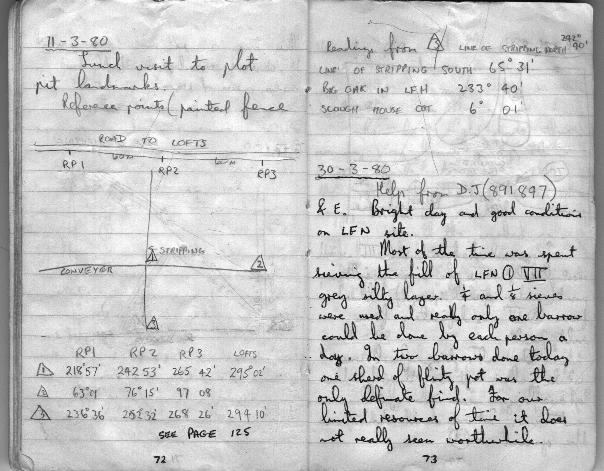 11-3-80
Lunch visit to plot
pit landmarks.
Reference points (painted fence
ROAD TO LOFTS
60M
60M
RP1 RP2 RP3
STRIPPING
1
2
CONVEYER
3
RP1 RP2 RP3 LOFTS
1 218°57' 242 53' 265 42' 295°02'
2 63°01 76°15' 97 08
3 236°36' 252°32' 268 26' 294 10'
SEE PAGE 125
72
Readings from 3 LINE OF STRIPPING NORTH 292° 40'
LINE OF STRIPPING SOUTH 65° 31'
BIG OAK IN LFH 233° 40'
SLOUGH HOUSE COT 6° 01'
30-3-80
Help from D.J (891897)
& E. Bright day and good conditions
on LFN site.
Most of the time was spent
sieving the fill of LFN ① VII
grey silty layer. ¼ and ⅛ sieves
were used and really only one barrow
could be done by each person a
day. In two barrows done today
one sherd of flinty pot was the
only definate find. For our
limited resources of time it does
not really seem worthwhile.
73